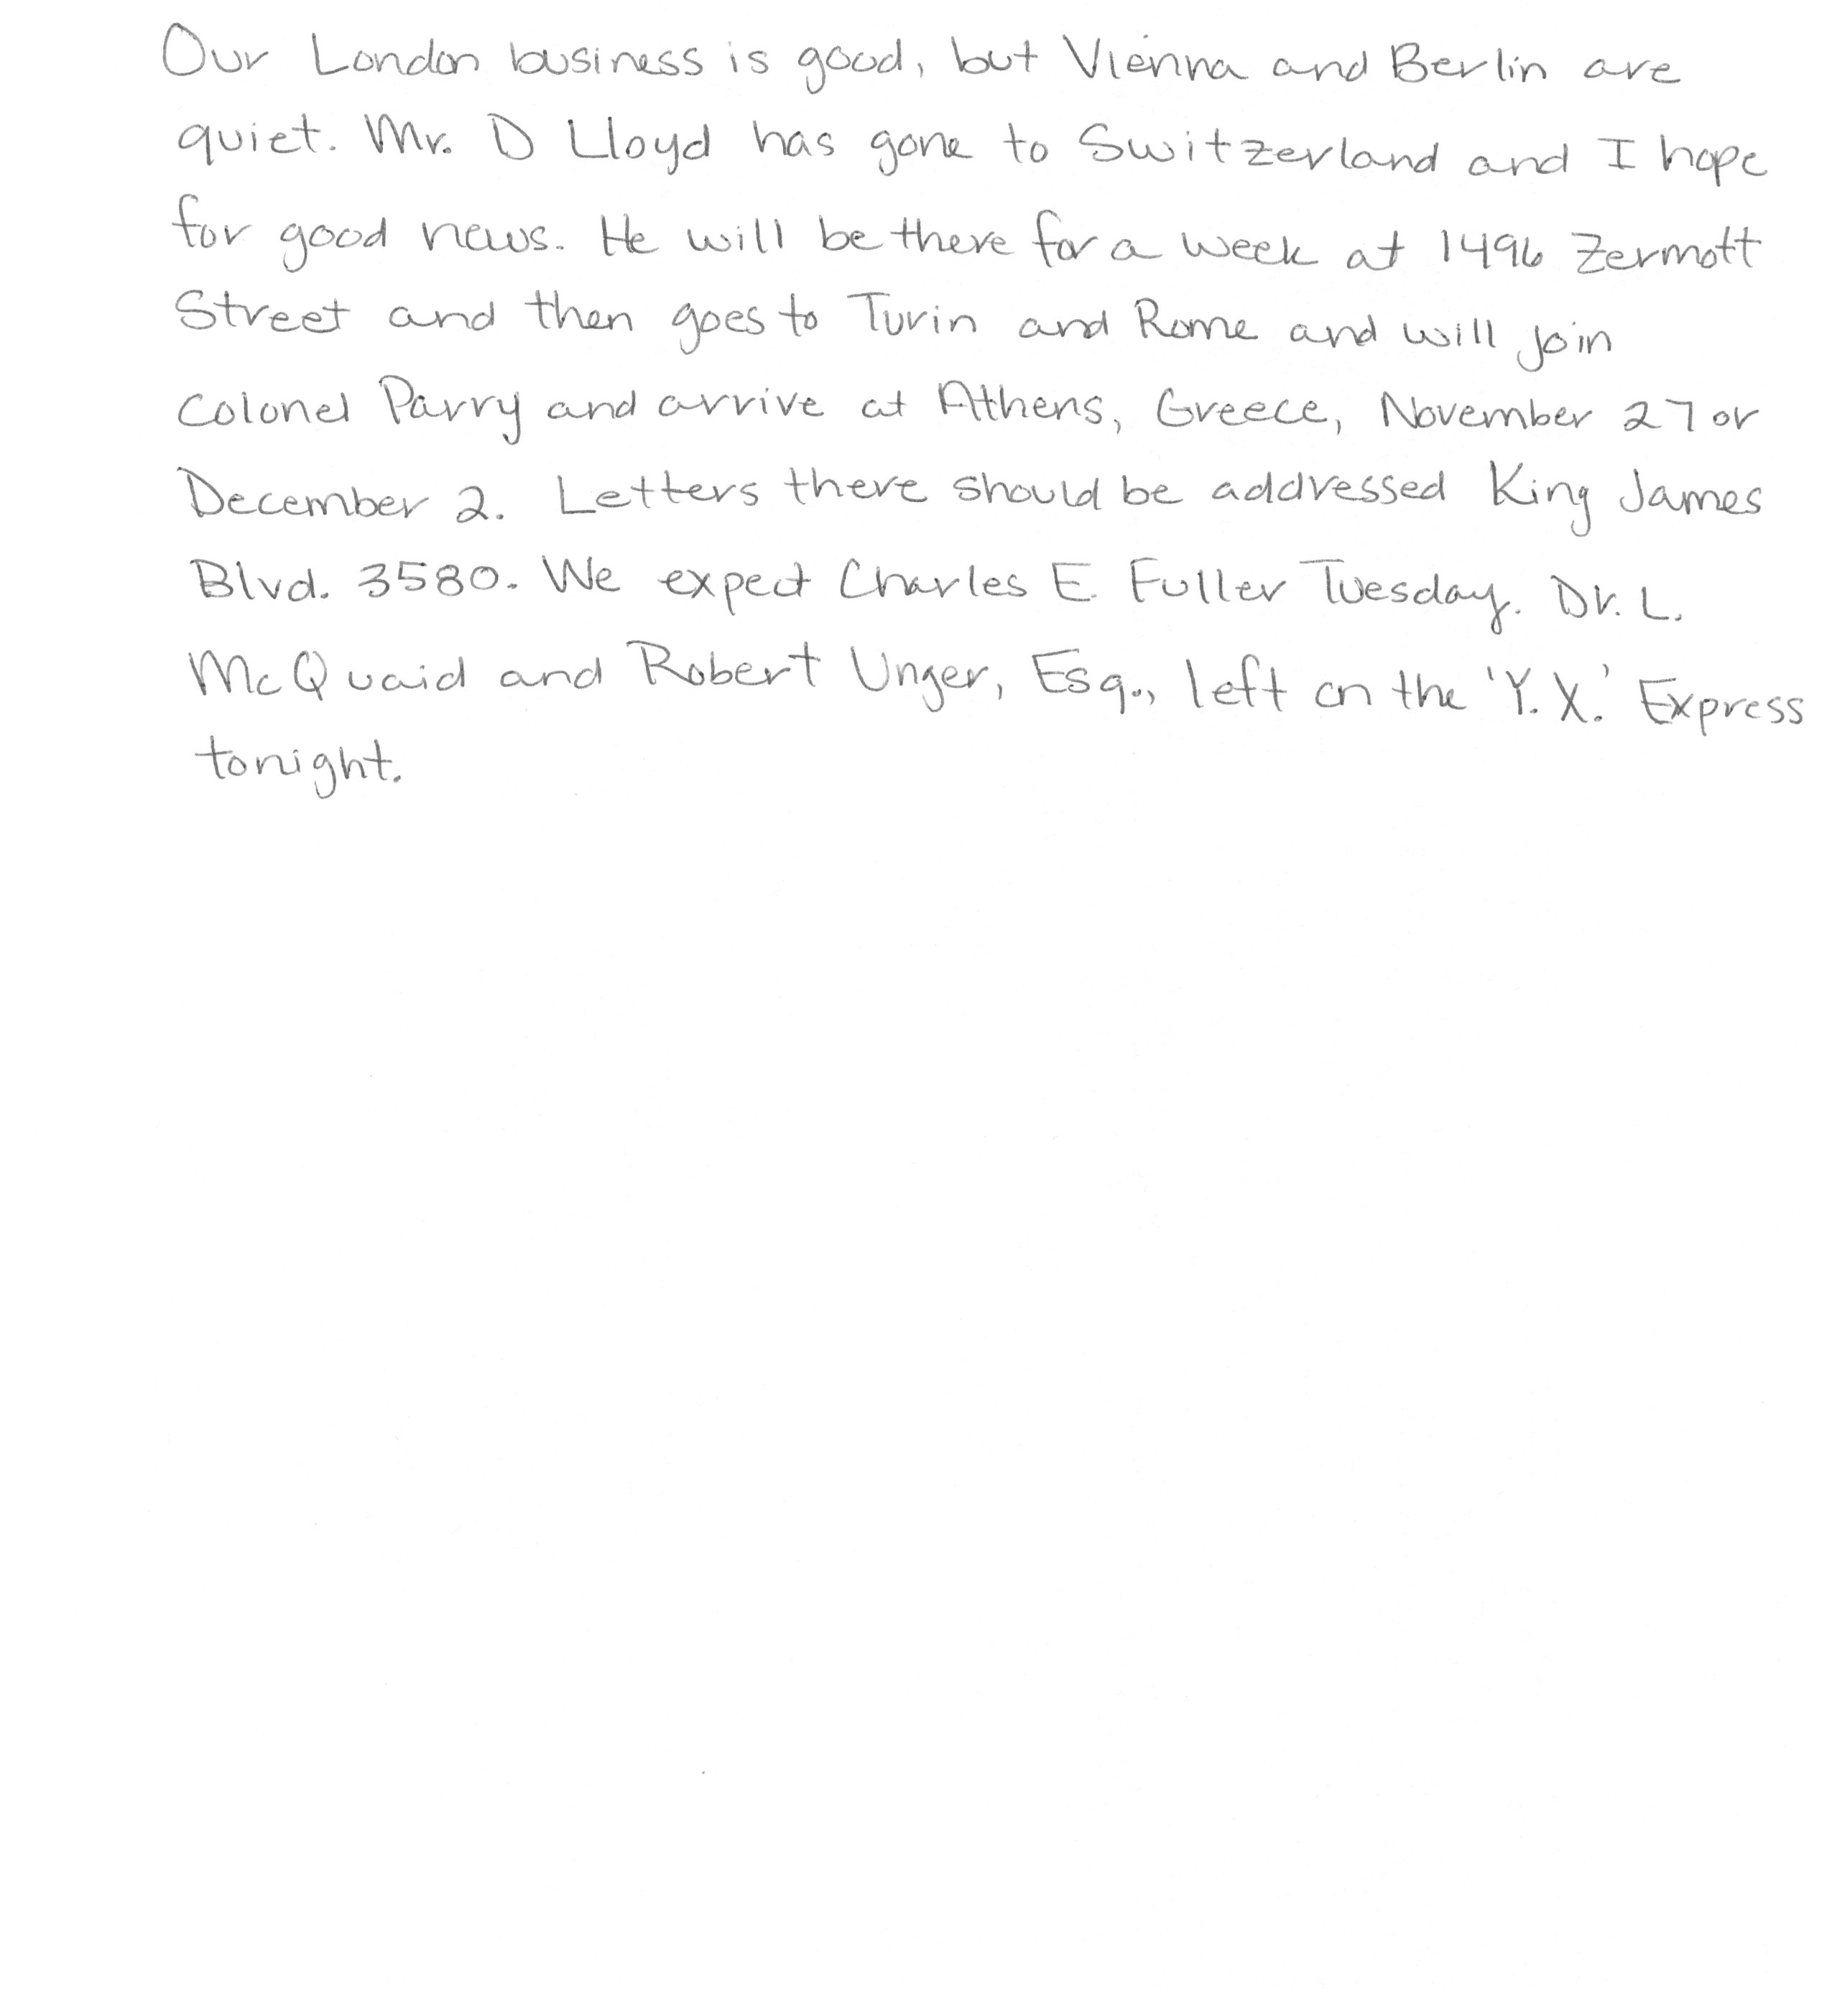 Our London business is good, but Vienna and Berlin are
quiet. Mr. D Lloyd has gone to Switzerland and I hope
for good news. He will be there for a week at 1496 Zermott
Street and then goes to Turin and Rome and will join
Colonel Parry and arrive at Athens, Greece, November 27 or
December 2. Letters there should be addressed King James
Blvd. 3580. We expect Charles E. Fuller Tuesday. Dr. L.
McQuaid and Robert Unger, Esq., left on the 'Y. X.' Express
tonight.